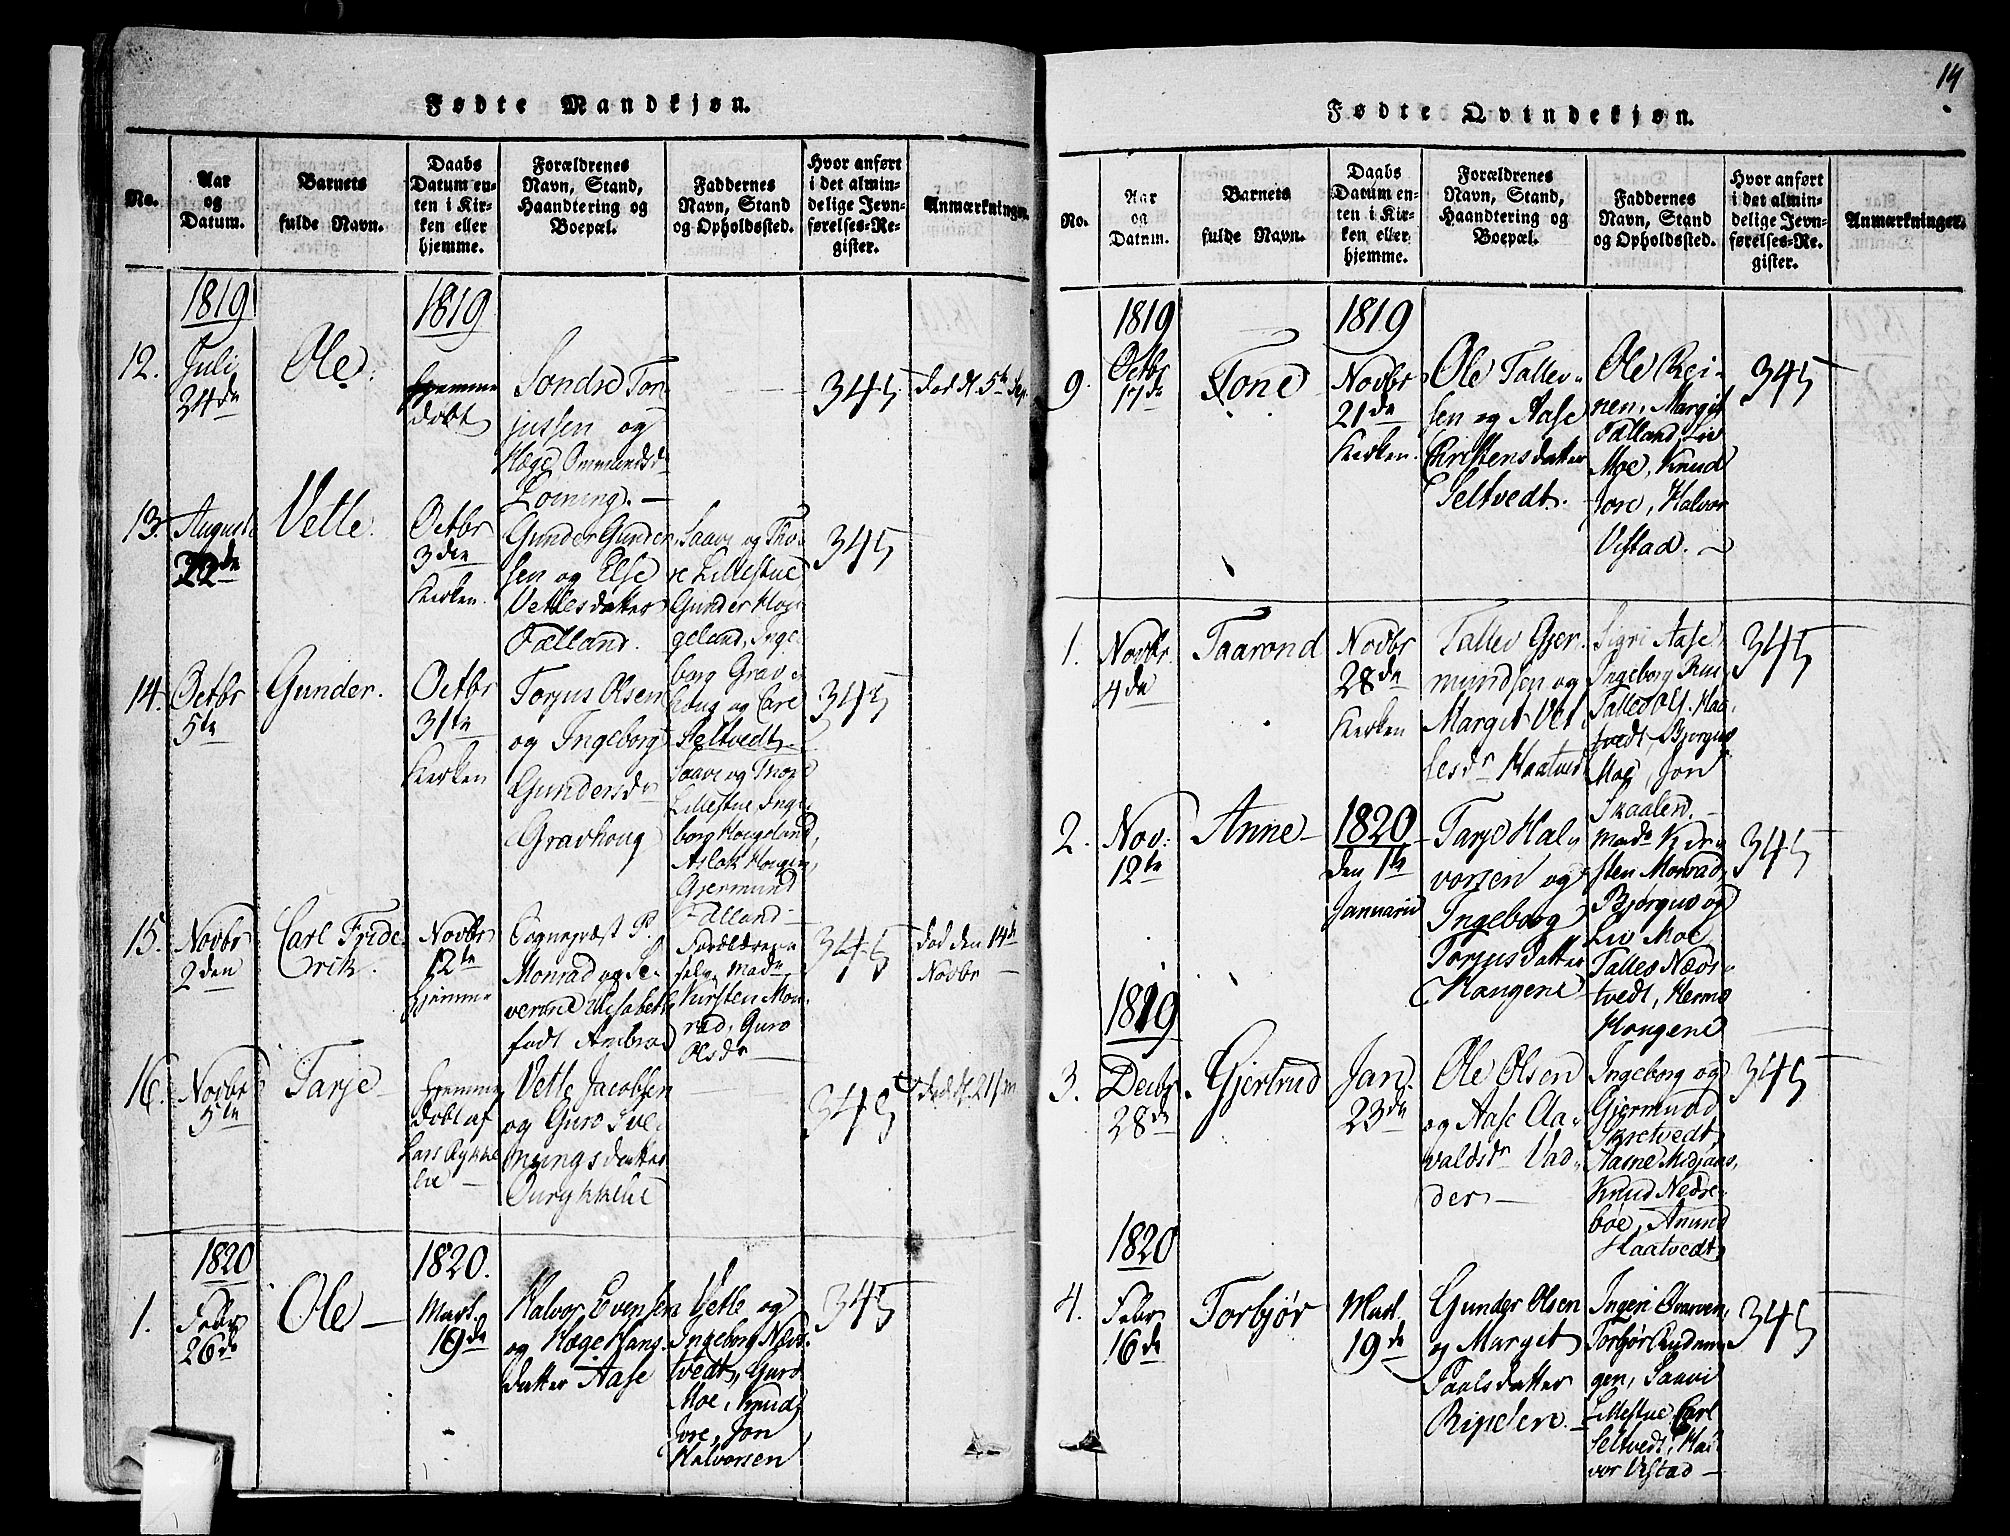 Fødte Mandkjøn.
No.
Aar
og
Datum.
Barnets
fulde Navn.
Daabs
Datum en-
ten i Kir-
ken eller
hjemme.
Forældrenes
Navn, Stand,
Haandtering og
Boepæl.
Faddernes
Navn, Stand
og Opholdssted.
Hvor anført
i det almin-
delige Jevn-
førelses-Re-
gister.
Anmærkninger.
12.
1819
Juli
24de
Ole.
1819
Hjemme
døbt
Søndre Tor
jussen og
Hæge Ommundsdr
Loining. —
345
død d. 5te Sep.
13.
August
22de
Vetle.
Octbr
3den
Kirken.
Gunder Gunder
sen og Else
Vetlesdatter
Fælland.
Saave og Tho-
re Lillestue
Gunder Hou
geland, Inge
borg Grav-
houg og Carl
Seltvedt
345
14.
Octbr
5te
Gunder.
Octbr
31te
Kirken
Torjus Olsen
og Ingeborg
Gundersdr
Gravhoug
Saave og Thore
Lillestue Inge
borg Hougeland,
Aslak Hougen,
Gjermund
Fælland —
345
15.
Novbr
2den
Carl Fride
rik.
Novbr
12te
hjemme
Sognepræst P.
Monrad og Se-
verine Elisabeth
født
Forældrene
selv, Made
Kirsten Mon-
rad, Guro
Olsdr
345
død den 14de
Novbr
16.
Novbr
5te
Tarje
hjemme
døbt af
Lars Rykke
lie —
Vetle Jacobsen
og Guro Sve-
nungsdatter
345
død d. 21
1.
1820
Febr
26de
Ole —
1820.
Mart.
19de
Halvor Evensen
og Hæge Hans-
datter Aase
Vetle og
Ingeborg Næds
tvedt, Guro
Moe, Knud
Jore, Jon
Halvorsen
345
14
Fødte Qvindekjøn.
No.
Aar
og
Datum.
Barnets
fulde Navn.
Daabs
Datum en-
ten i Kir-
ken eller
hjemme.
Forældrenes
Navn, Stand,
Haandtering og
Boepæl.
Faddernes
Navn, Stand
og Opholdssted.
Hvor anført
i det almin-
delige Jevn-
førelses-Re-
gister.
Anmærkninger.
9.
1819
Octbr
17de
Tone
1819
Novbr
21de
Kirken.
Ole Tallev-
sen og Aase
Christensdatter
Seltvedt.
Ole Rei-
nen, Margit
Fælland, Liv
Moe, Knud
Jore, Halvor
Vistad. —
345
1.
Novbr.
4de
Taarond
Novbr
28de
Kirken
Tallev Gjer
mundsen og
Margit Vet
lesdr Haatvedt
Sigri Aase,
Ingeborg
Tallev Ols. Haa-
tvedt, Bjørgus
Moe, Jon
Skaalen. —
345
2.
Nov.
12te
Anne —
1820
den 1te
Januarii
Tarje Hal-
vorsen og
Ingeborg
Torjusdatter
Haugene
Made Kir-
sten Monrad,
Bjørgus og
Liv Moe
Tallev Næds-
tvedt,
Hougene
345
3.
1819
Decbr
28de
Gjertrud
Jan.
23de
Ole Olsen
og Aase Aa-
valdsdr Vad-
der —
Ingeborg og
Gjermund
Skretvedt,
Aasne Midjaas,
Knud Nedre-
bøe, Anund
Haatvedt
345
4.
1820
Febr
16de
Torbjør
Mart.
19de
Gunder Olsen
og Margit
Paalsdatter
Ripelen. —
Ingeri Qværven,
Torbjør
gen, Saavi
Lillestue, Carl
Seltvedt, Hal-
vor Vistad —
345